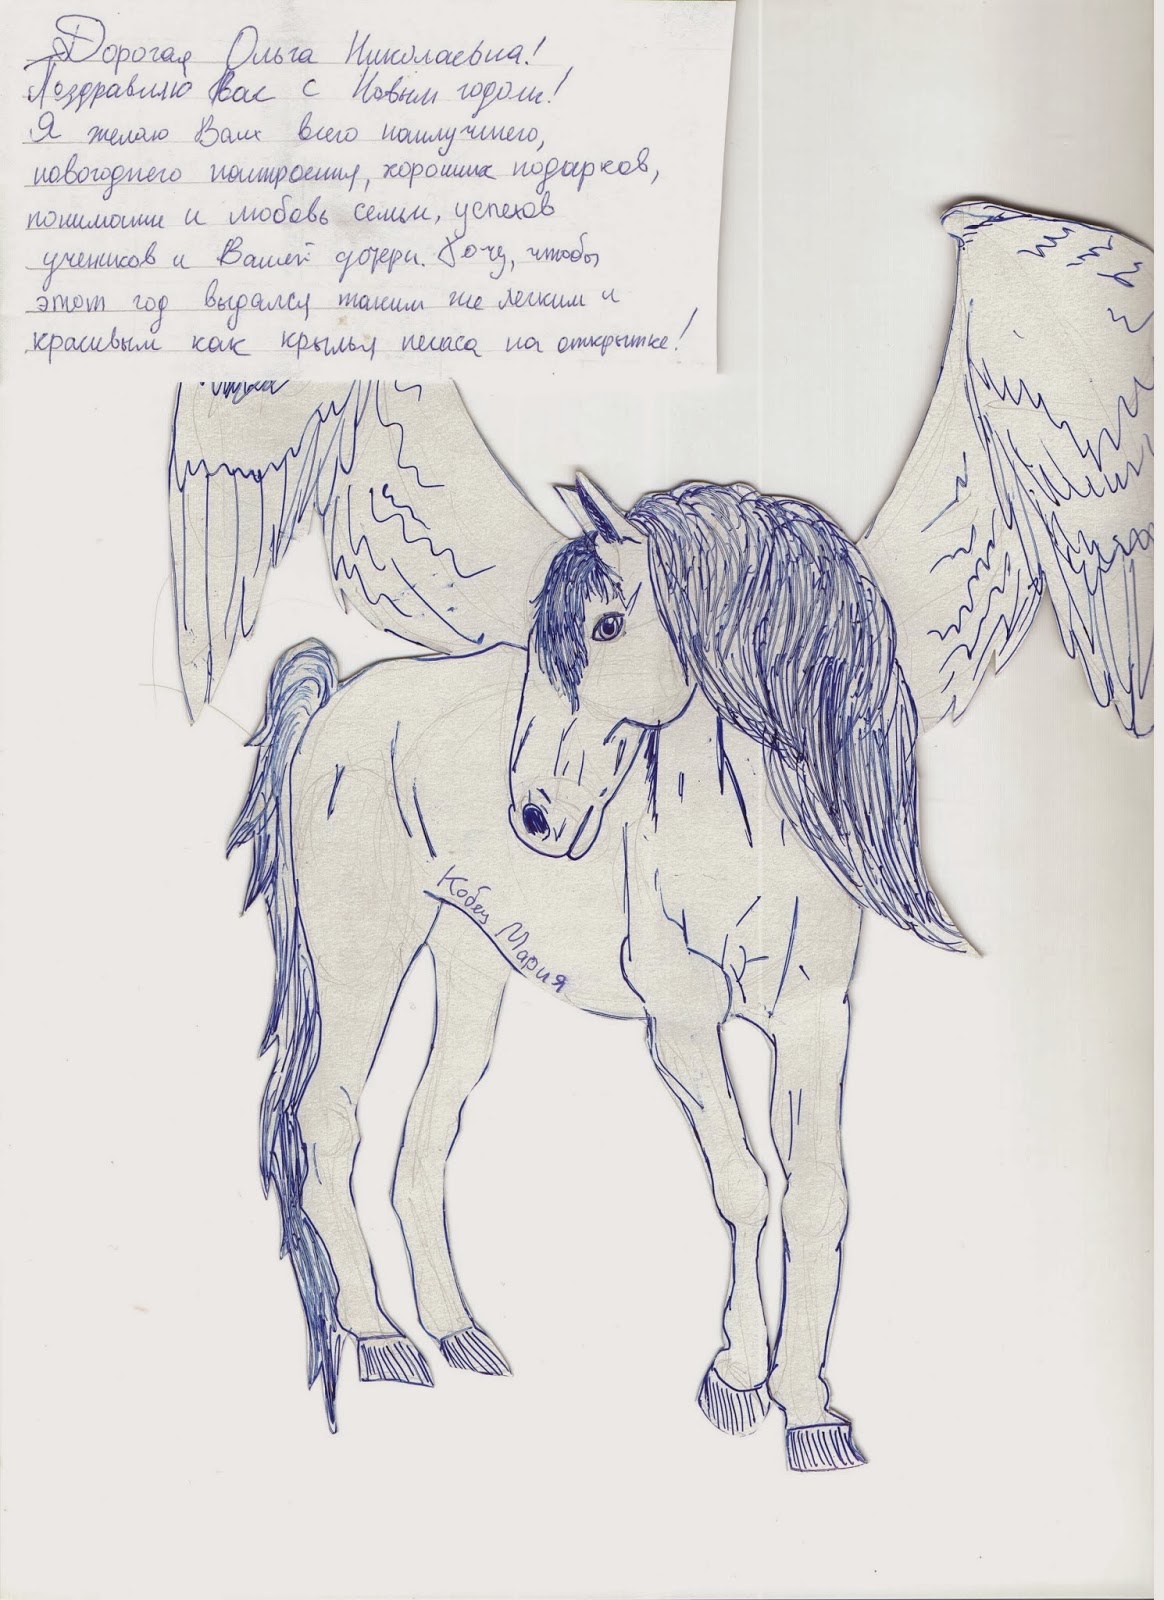 Дорогая Ольга Николаевна!
Поздравляю Вас с Новым годом!
Я желаю Вам всего наилучшего,
новогоднего настроения, хороших подарков,
понимания и любовь семьи, успехов
учеников и Вашей дочери. Хочу, чтобы
этот год выдался таким же легким и
красивым как крылья пегаса на открытке!
Кобец Мария